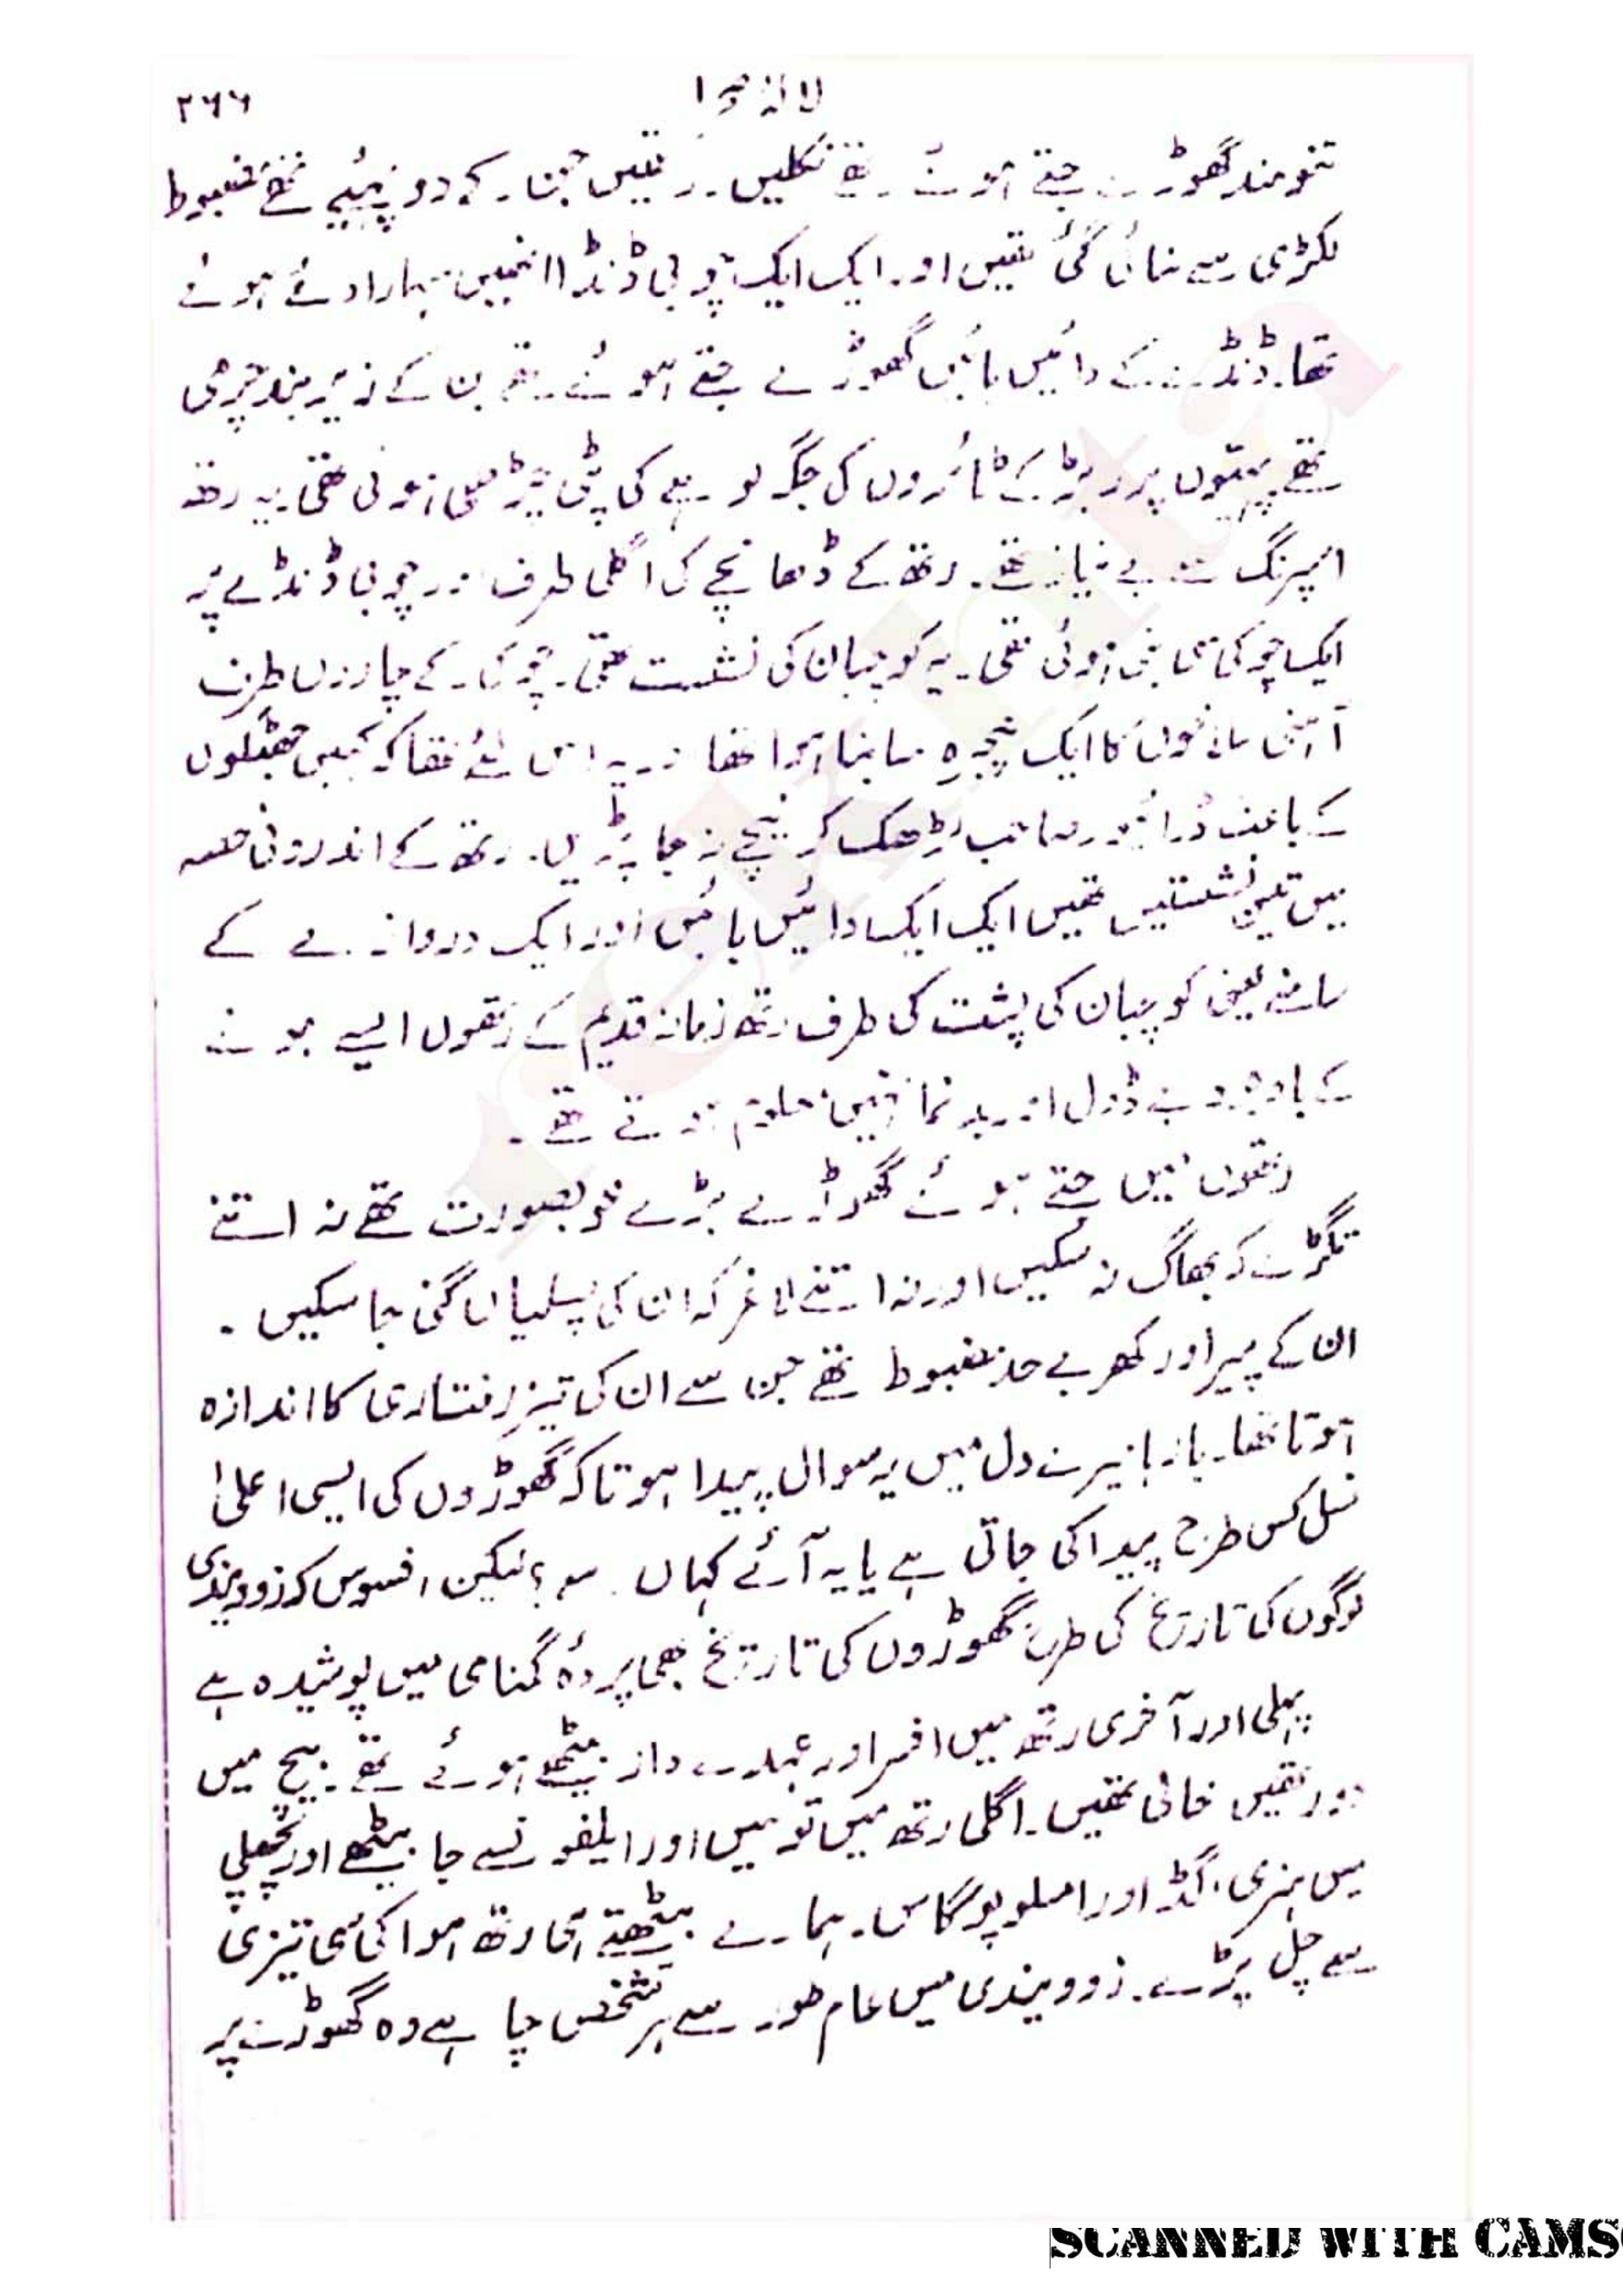 لالۂ صحرا ۲۶۶
تنومند گھوڑے جتے ہوئے تھے نکلیں۔ رتھیں جن کے دو پہیے تھے مضبوط
لکڑی سے بنائی گئی تھیں اور ایک ایک چوبی ڈنڈا انھیں سہارا دئے ہوئے
تھا۔ ڈنڈے کے دائیں بائیں گھوڑے جتے ہوئے تھے جن کے زیر بند چرمی
تھے پہیوں پر ربڑ کے ٹائروں کی جگہ لوہے کی پٹی چڑھی ہوئی تھی۔ یہ رتھ
اسپرنگ سے بے نیاز تھے۔ رتھ کے ڈھانچے کی اگلی طرف اور چوبی ڈنڈے پر
ایک چوکی سی بنی ہوئی تھی۔ یہ کوچبان کی نشست تھی۔ چوکی کے چاروں طرف
آہنی سلاخوں کا ایک پنجرہ سا بنا ہوا تھا اور یہ اس لئے تھا کہ کہیں جھٹکوں
کے باعث ڈرائیور صاحب لڑھک کر نیچے نہ جا پڑیں۔ رتھ کے اندرونی حصہ
میں تین نشستیں تھیں ایک ایک دائیں بائیں اور ایک دروازے کے
سامنے یعنی کوچبان کی پشت کی طرف رتھ زمانہ قدیم کے رتھوں ایسے ہونے
کے باوجود بے ڈول اور بدنما نہیں معلوم ہوتے تھے۔
رتھوں میں جتے ہوئے گھوڑے بڑے خوبصورت تھے نہ اتنے
تگڑے کہ بھاگ نہ سکیں اور نہ اتنے لاغر کہ ان کی پسلیاں گنی جا سکیں۔
ان کے پیر اور کھر بے حد مضبوط تھے جن سے ان کی تیز رفتاری کا اندازہ
ہوتا تھا۔ بار بار میرے دل میں یہ سوال پیدا ہوتا کہ گھوڑوں کی ایسی اعلیٰ
نسل کس طرح پیدا کی جاتی ہے یا یہ آئے کہاں سے؟ لیکن افسوس کہ زوویندی
لوگوں کی تاریخ کی طرح گھوڑوں کی تاریخ بھی پردۂ گمنامی میں پوشیدہ ہے
پہلی اور آخری رتھ میں افسر اور عہدے دار بیٹھے ہوئے تھے۔ بیچ میں
دو رتھیں خالی تھیں۔ اگلی رتھ میں تو میں اور ایلفونسے جا بیٹھے اور پچھلی
میں ہنری، گڈ اور امسلوپوگاس۔ ہمارے بیٹھتے ہی رتھ ہوا کی سی تیزی
سے چل پڑے۔ زوویندی میں عام طور سے ہر شخص چاہے وہ گھوڑے پر
SCANNED WITH CAMS